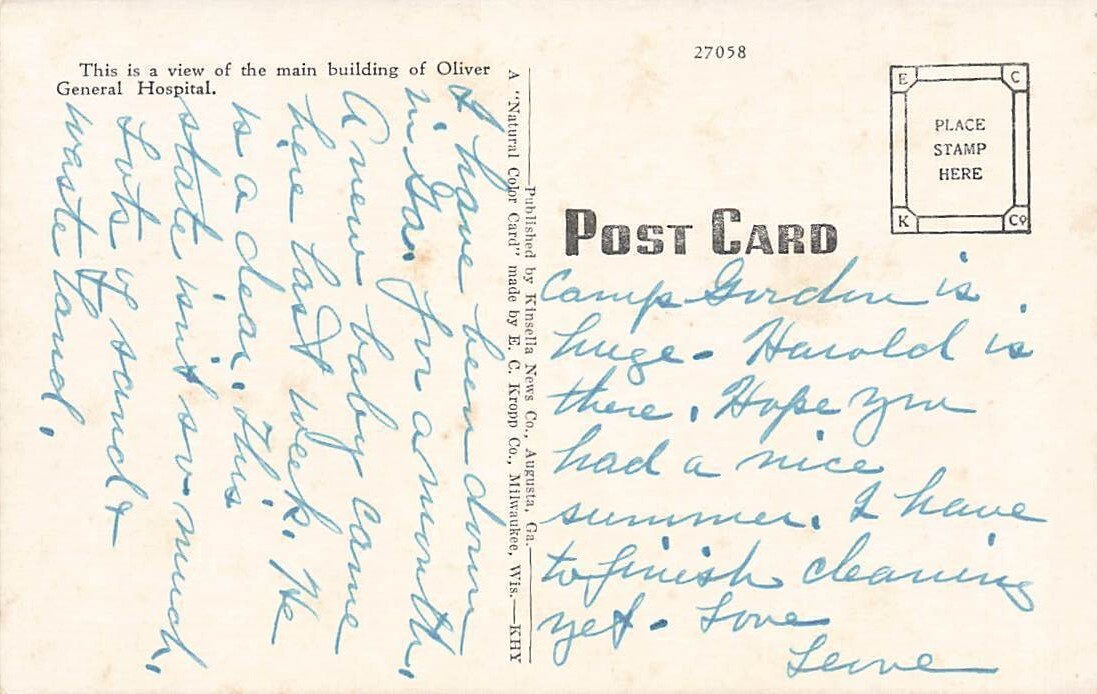 27058
This is a view of the main building of Oliver
General Hospital.
E C
PLACE
STAMP
HERE
K Co
POST CARD
Published by Kinsella News Co., Augusta, Ga.
A "Natural Color Card" made by E. C. Kropp Co., Milwaukee, Wis.—KHY
I have been down
in Ga. for a month.
A new baby came
here last week. He
is a dear. This
state isn't so much.
Lots of sand &
waste land.
Camp Gordon is
huge - Harold is
there. Hope you
had a nice
summer. I have
to finish cleaning
yet - Love